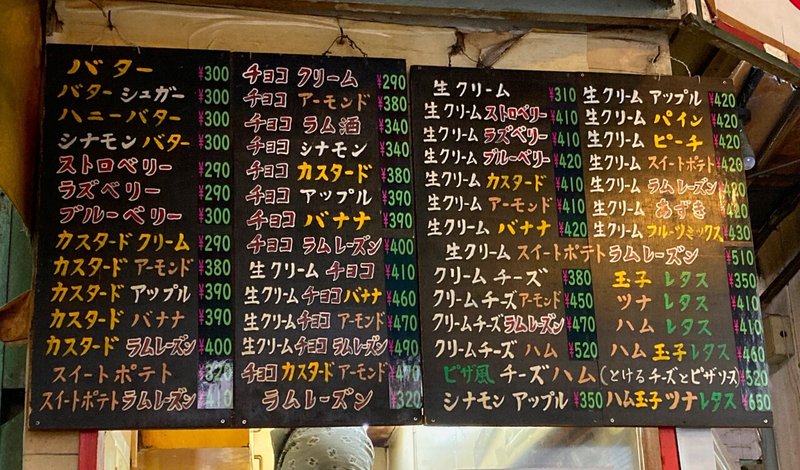 バター ¥300
バター シュガー ¥300
ハニーバター ¥300
シナモン バター ¥300
ストロベリー ¥290
ラズベリー ¥290
ブルーベリー ¥300
カスタード クリーム ¥290
カスタード アーモンド ¥380
カスタード アップル ¥390
カスタード バナナ ¥390
カスタード ラムレーズン ¥400
スイート ポテト ¥320
スイートポテト ラムレーズン ¥410
チョコ クリーム ¥290
チョコ アーモンド ¥380
チョコ ラム酒 ¥340
チョコ シナモン ¥340
チョコ カスタード ¥380
チョコ アップル ¥390
チョコ バナナ ¥390
チョコ ラムレーズン ¥400
生クリーム チョコ ¥410
生クリーム チョコ バナナ ¥460
生クリーム チョコ アーモンド ¥470
生クリーム チョコ ラムレーズン ¥490
チョコ カスタード アーモンド ¥470
ラムレーズン ¥320
生クリーム ¥310
生クリーム ストロベリー ¥410
生クリーム ラズベリー ¥410
生クリーム ブルーベリー ¥420
生クリーム カスタード ¥410
生クリーム アーモンド ¥410
生クリーム バナナ ¥420
生クリーム アップル ¥420
生クリーム パイン ¥420
生クリーム ピーチ ¥420
生クリーム スイートポテト ¥420
生クリーム ラムレーズン ¥420
生クリーム あずき ¥420
生クリーム フルーツミックス ¥430
生クリーム スイートポテト ラムレーズン ¥510
クリーム チーズ ¥380
クリームチーズ アーモンド ¥450
クリームチーズ ラムレーズン ¥470
クリームチーズ ハム ¥520
玉子 レタス ¥350
ツナ レタス ¥410
ハム レタス ¥410
ハム 玉子 レタス ¥460
ピザ風 チーズ ハム (とけるチーズとピザソース) ¥520
シナモン アップル ¥350
ハム 玉子 ツナ レタス ¥650